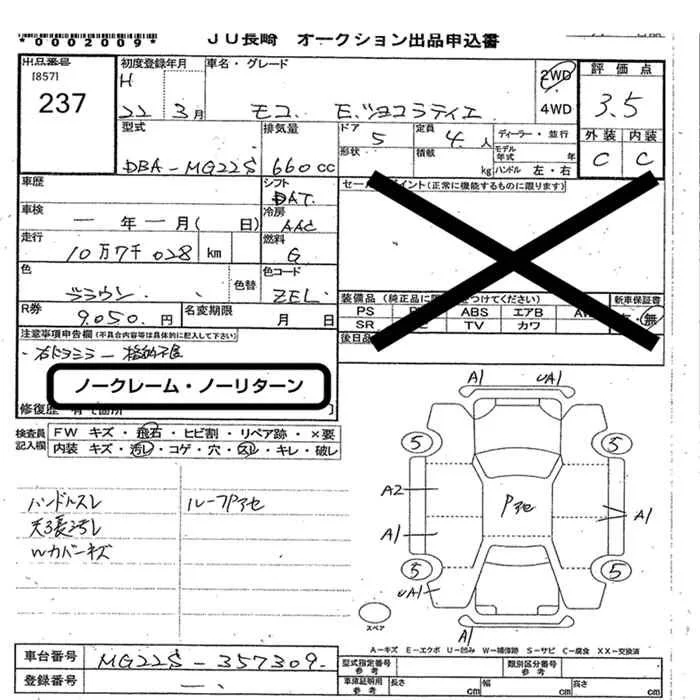 *0002009*
JU長崎 オークション出品申込書
出品番号
[857]
237
初度登録年月
H
22 3月
車名・グレード
モコ E.ショコラティエ
2WD
4WD
評価点
3.5
外装 内装
C C
型式
DBA-MG22S
排気量
660cc
ドア 5
形状
定員 4人
積載 kg
ディーラー・並行
モデル年式 年
ハンドル 左・右
車歴
シフト
DAT.
セールスポイント(正常に機能するものに限ります)
車検
ー年ー月( 日)
冷房
AAC
走行
10万7千028 km
燃料
G
色
ブラウン.
色替
色コード
ZEL.
装備品
新車保証書
PS ABS エアB
SR TV カワ
無
R券
9050.円
名変期限
月 日
後日品
注意事項申告欄(不具合内容等は具体的に記入して下さい)
・右ドアミラー格納不良
ノークレーム・ノーリターン
修復歴
検査員記入欄
FW キズ・飛石・ヒビ割・リペア跡・×要
内装 キズ・汚レ・コゲ・穴・スレ・キレ・破レ
ハンドルスレ ルーフPアセ
天張汚レ
Wカバーキズ
A1 UA1
5 5
A2
Pアセ
A1
A1
5 5
UA1
A1
スペア
A-キズ E-エクボ U-凹み W-補修跡 S-サビ C-腐食 XX-交換済
車台番号
MG22S-357309.
登録番号
ー、
型式指定番号 参考
類別区分番号 参考
車庫証明用 参考
長さ cm
幅 cm
高さ cm